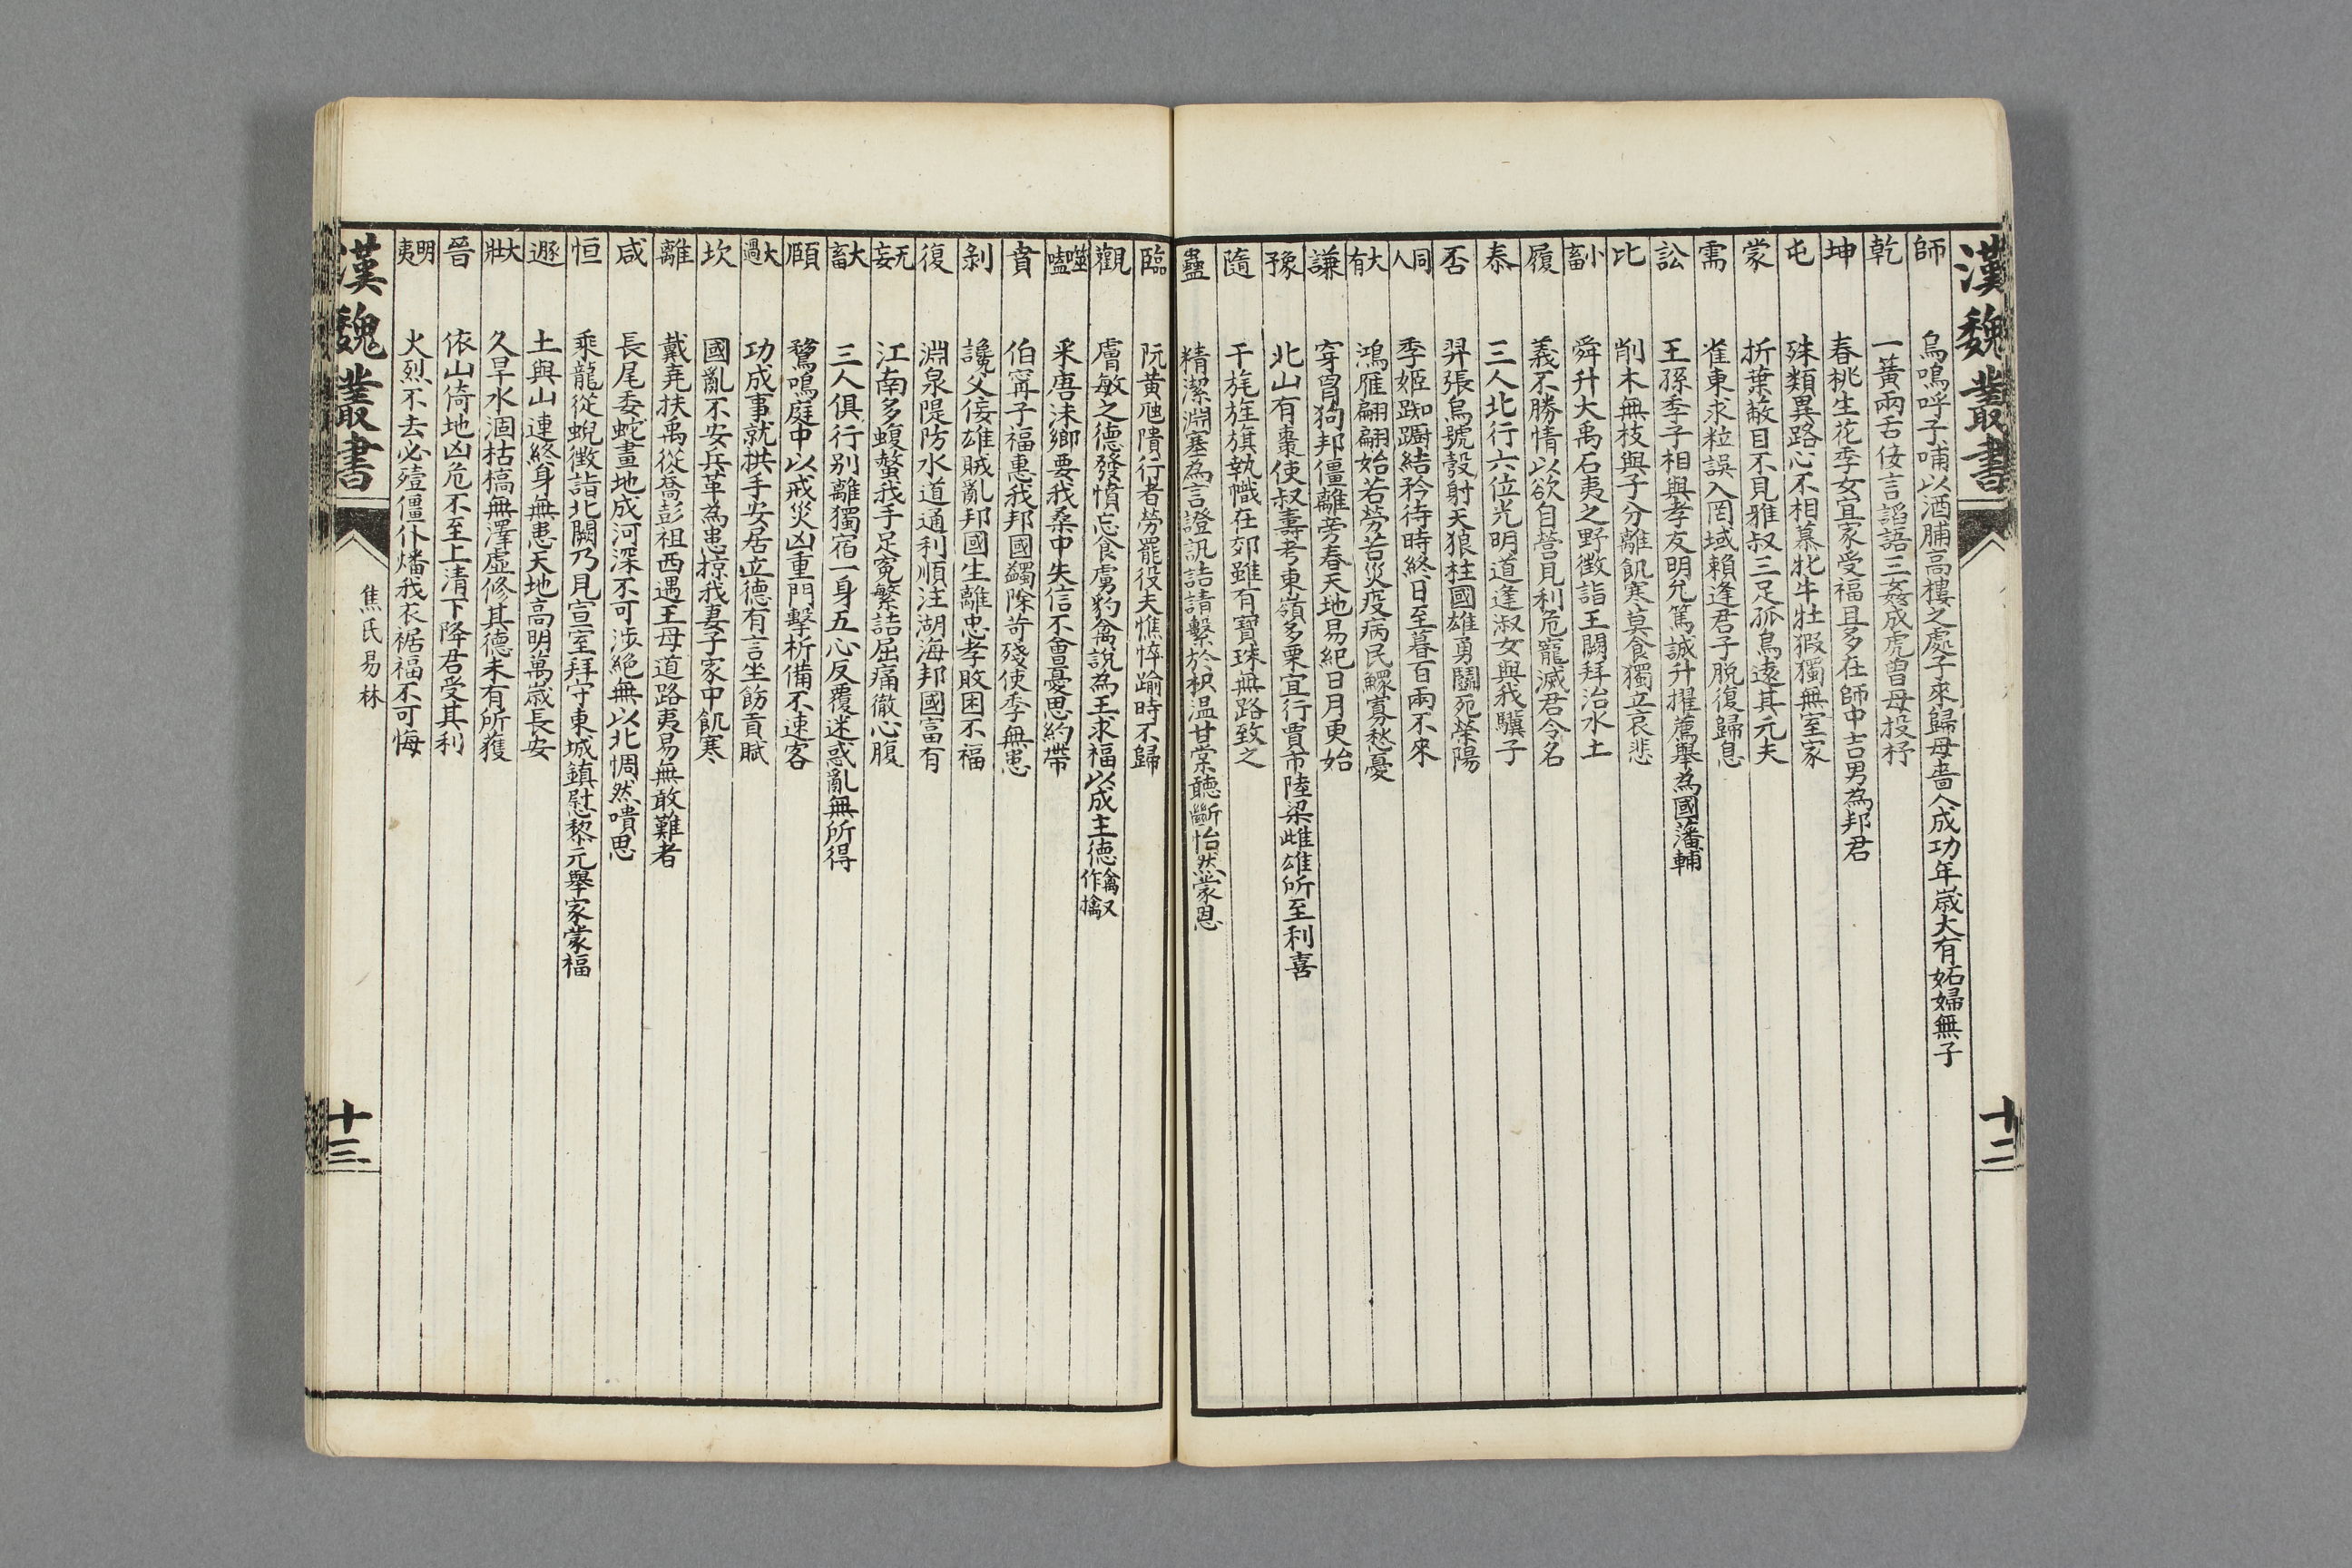 漢魏叢書
十二
師 烏鳴呼子哺以酒脯高樓之處子來歸母嗇人成功年歲大有妬婦無子
乾 一簧兩舌佞言諂語三姦成虎曾母投杼
坤 春桃生花季女宜家受福且多在師中吉男為邦君
屯 殊類異路心不相慕牝牛牡猳獨無室家
蒙 折葉蔽目不見稚叔三足孤鳥遠其元夫
需 雀東求粒誤入罔域賴逢君子脫復歸息
訟 王孫季子相與孝友明允篤誠升擢薦舉為國藩輔
比 削木無枝與子分離飢寒莫食獨立哀悲
小畜 舜升大禹石夷之野徵詣王闕拜治水土
履 義不勝情以欲自營見利危寵滅君令名
泰 三人北行六位光明道逢淑女與我驥子
否 羿張烏號彀射天狼柱國雄勇鬭死滎陽
同人 季姬踟躕結衿待時終日至暮百兩不來
大有 鴻雁翩翩始若勞苦災疫病民鰥寡愁憂
謙 穿胷狗邦僵離旁春天地易紀日月更始
豫 北山有棗使叔壽考東嶺多栗宜行賈市陸梁雌雄所至利喜
隨 干旄旌旗執幟在郊雖有寶珠無路致之
蠱 精潔淵塞為言證訊詰請繫於枳温甘棠聽斷怡然蒙恩
臨 阮黃虺隤行者勞罷役夫憔悴踰時不歸
觀 膚敏之德發憤忘食虜豹禽說為王求福以成主德禽又作擒
噬嗑 采唐沬鄉要我桑中失信不會憂思約帶
賁 伯寗子福惠我邦國蠲除苛殘使季無患
剝 讒父佞雄賊亂邦國生離忠孝敗困不福
復 淵泉隄防水道通利順注湖海邦國富有
无妄 江南多蝮螫我手足寃繁詰屈痛徹心腹
大畜 三人俱行别離獨宿一身五心反覆迷惑亂無所得
頤 鶩鳴庭中以戒災凶重門擊柝備不速客
大過 功成事就拱手安居立德有言坐飭貢賦
坎 國亂不安兵革為患掠我妻子家中飢寒
離 戴堯扶禹從喬彭祖西遇王母道路夷易無敢難者
咸 長尾委蛇畫地成河深不可涉絶無以北惆然嘳思
恒 乘龍從蜺徵詣北闕乃見宣室拜守東城鎮慰黎元舉家蒙福
遯 土與山連終身無患天地高明萬歲長安
大壯 久旱水涸枯槁無澤虛修其德未有所獲
晉 依山倚地凶危不至上清下降君受其利
明夷 火烈不去必殪僵仆燔我衣裾福不可悔
漢魏叢書
焦氏易林
十三